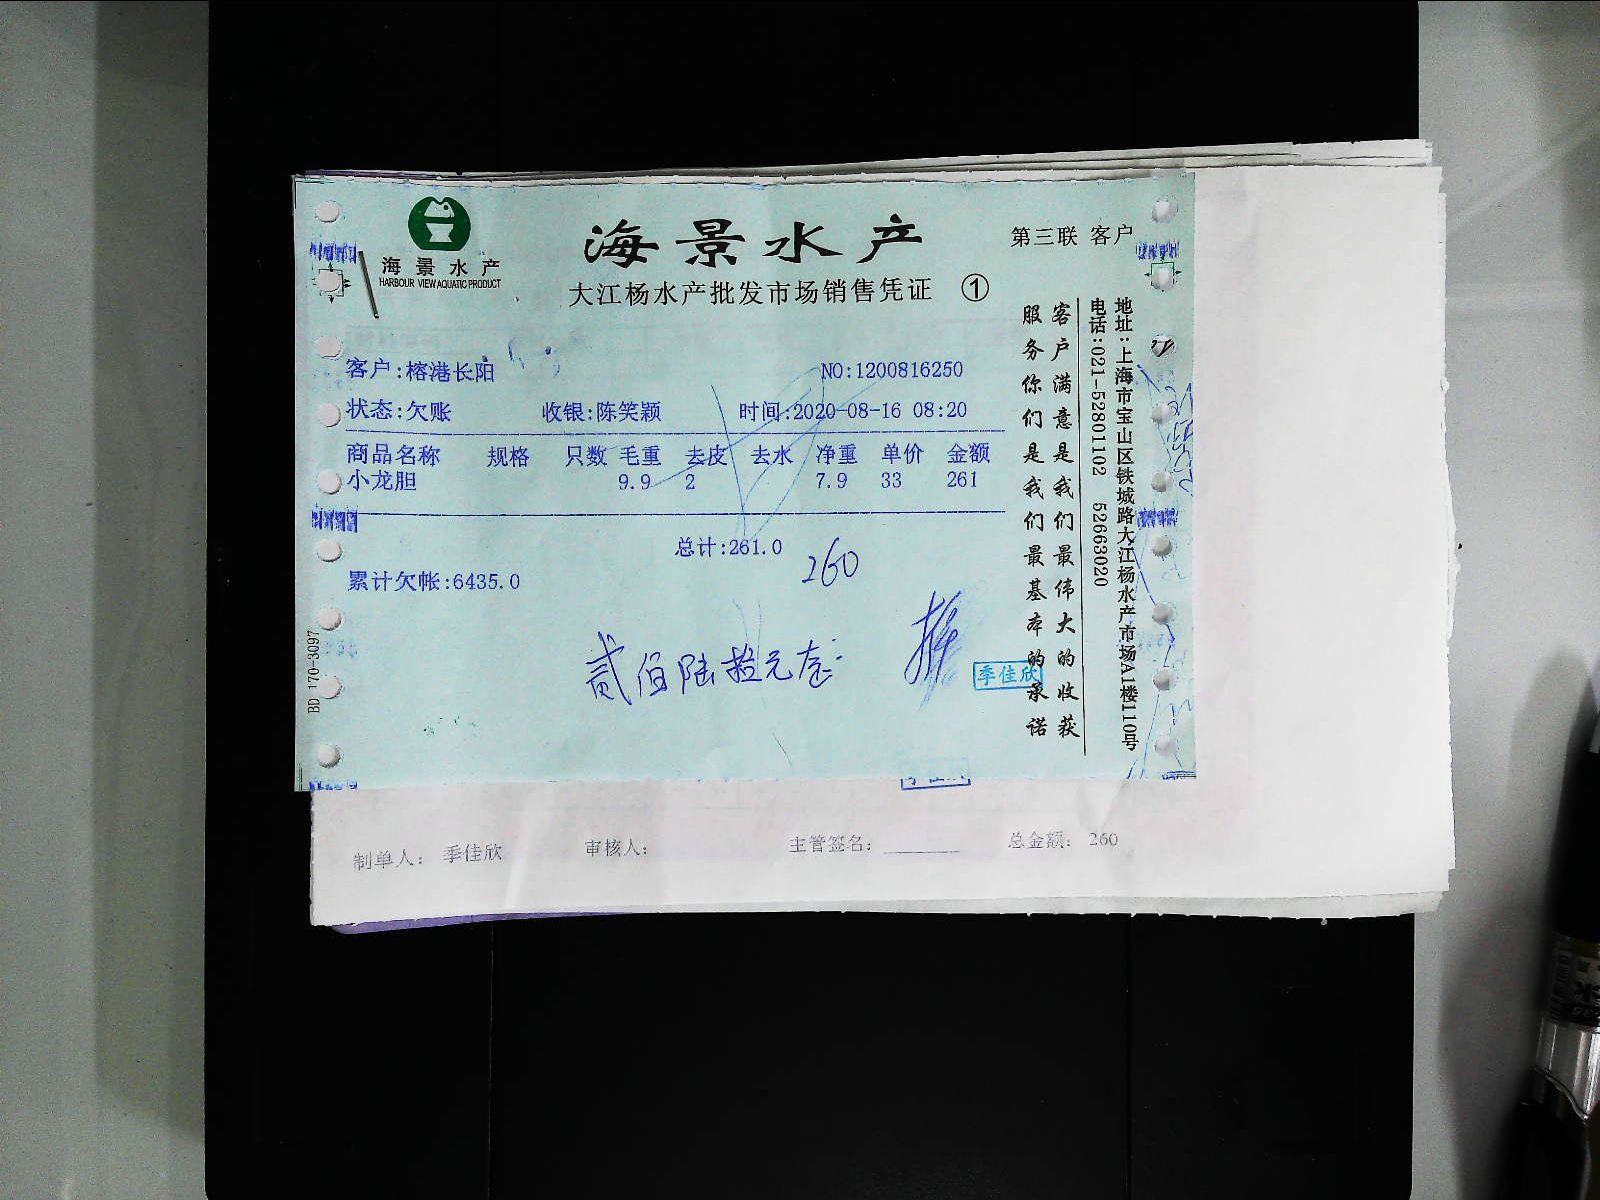 海景水产
HARBOUR VIEW AQUATIC PRODUCT
海景水产
第三联 客户
大江杨水产批发市场销售凭证 ①
客户:榕港长阳 NO:1200816250
状态:欠账 收银:陈笑颖 时间:2020-08-16 08:20
商品名称 规格 只数 毛重 去皮 去水 净重 单价 金额
小龙胆 9.9 2 7.9 33 261
总计:261.0
260
累计欠帐:6435.0
贰佰陆拾元
季佳欣
客户满意是我们最伟大的收获
服务你们是我们最基本的承诺
地址:上海市宝山区铁城路大江杨水产市场A1楼110号
电话:021-52801102 52663020
BD 170-3097
制单人: 季佳欣 审核人: 主管签名: 总金额: 260